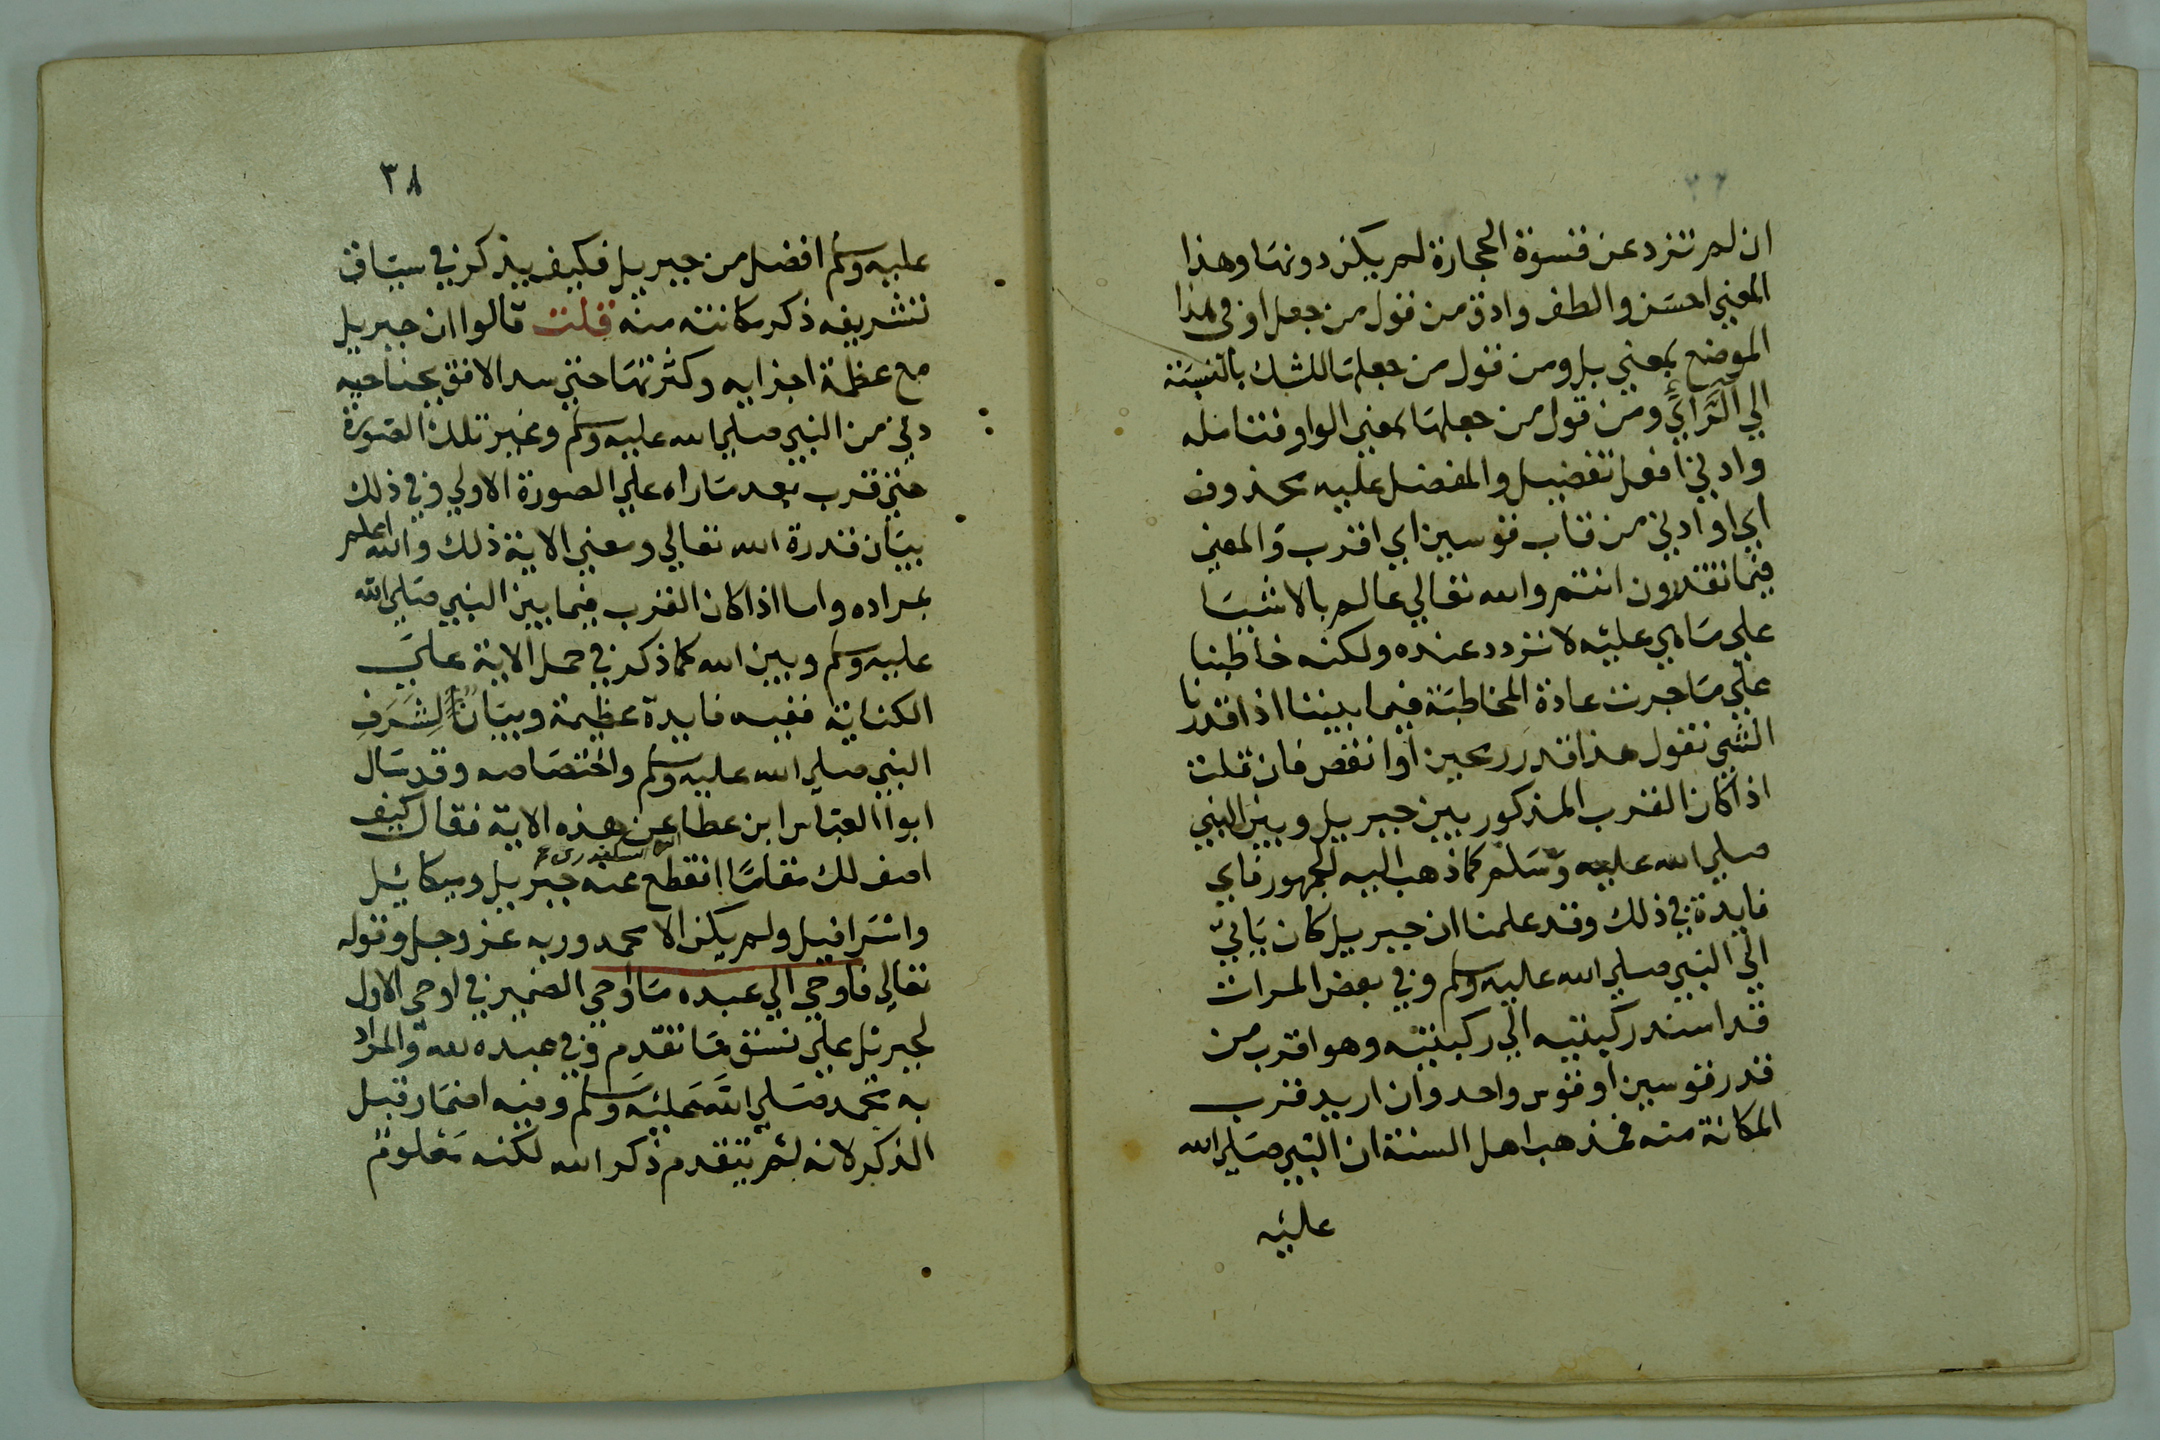 ان لم تزد عن قسوة الحجارة لم يكن دونها وهذا
المعني احسن والطف وادق من قول من جعل او في هذا
الموضع بمعني بل ومن قول من جعلها للشك بالنسبة
الي الرَّاىِٔ ومن قول من جعلها بمعني الواو فتامله
وادني افعل تفضيل والمفضل عليه محذوف
اي او ادني من قاب قوسين اي اقرب والمعني
فيما تقدرون انتم والله تعالي عالم بالاشيا
علي ما هي عليه لا تردد عنده ولكنه خاطبنا
علي ما جرت عادة المخاطبة فيما بيننا اذا قدرنا
الشي نقول هذا قدر رمحين او انقص فان قلت
اذا كان القرب المذكور بين جبريل وبين النبي
صلي الله عليه وسلم كما ذهب اليه الجمهور فاي
فايدة في ذلك وقد علمنا ان جبريل كان ياتي
الي النبي صلي الله عليه وسلم وفي بعض المرات
قد اسند ركبتيه الي ركبتيه وهو اقرب من
قدر قوسين او قوس واحد وان اريد قرب
المكانة منه فمذهب اهل السنة ان النبي صلي الله
عليه
٣٨
عليه وسلم افضل من جبريل فكيف يذكر في سياق
تشريفه ذكر مكانته منه قلت قالوا ان جبريل
مع عظمة اجزايه وكثرتها حتي سد الافق بجناحيه
دني من النبي صلي الله عليه وسلم وغير تلك الصورة
حتي قرب بعد ما راه علي الصورة الاولي وفي ذلك
بيان قدرة الله تعالي ومعني الاية ذلك والله اعلم
بمراده واما اذا كان القرب فيما بين النبي صلي الله
عليه وسلم وبين الله كما ذكر في حمل الاية علي
الكناية ففيه فايدة عظيمة وبيان لِشَرَفِ
النبي صلي الله عليه وسلم واختصاصه وقد سال
ابوا العباس ابن عطا عن هذه الاية فقال كيف
اصف لك مقاما انقطع عنه جبريل وميكائيل
واسرافيل ولم يكن الا محمد وربه عز وجل وقوله
تعالي فاوحي الي عبده ما اوحي الضمير في اوحي الاول
لجبرئل علي نسق ما تقدم وفي عبده لله والمراد
به محمد صلي الله عليه وسلم وفيه اضمار قبل
الذكر لانه لم يتقدم ذكر الله لكنه معلوم